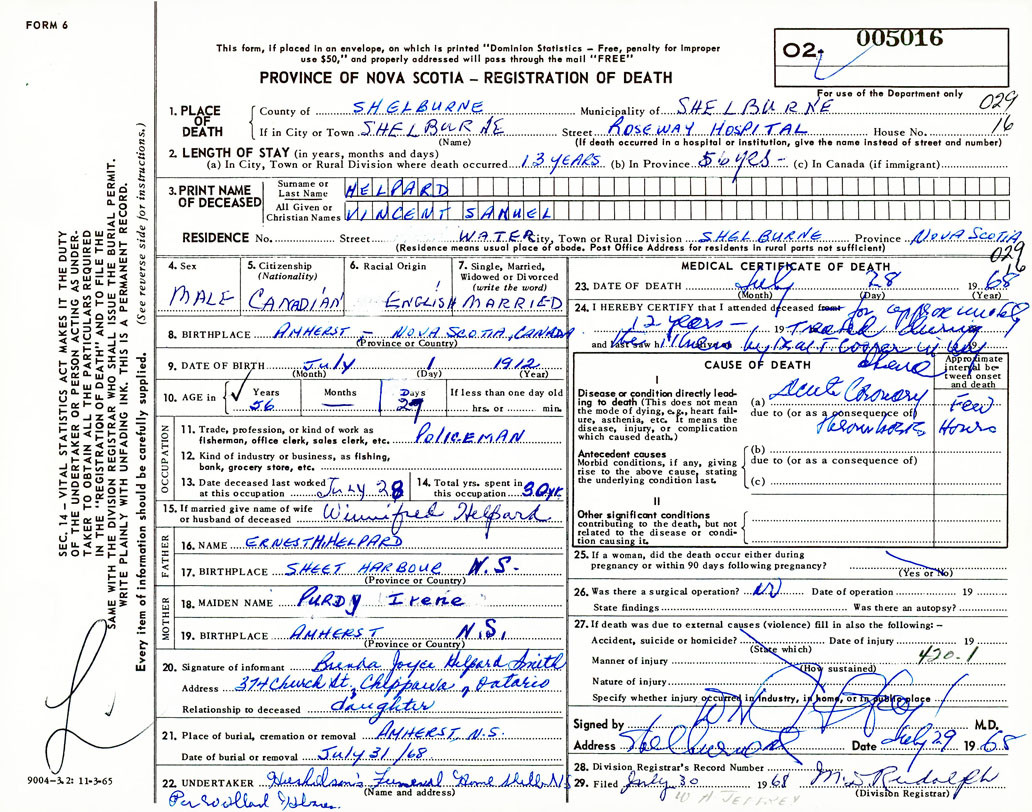 FORM 6
This form, if placed in an envelope, on which is printed "Dominion Statistics – Free, penalty for Improper
use $50," and properly addressed will pass through the mail "FREE"
PROVINCE OF NOVA SCOTIA – REGISTRATION OF DEATH
02- 005016
For use of the Department only
029
16
1. PLACE OF DEATH County of SHELBURNE Municipality of SHELBURNE
If in City or Town SHELBURNE Street ROSEWAY HOSPITAL House No.
(Name) (If death occurred in a hospital or institution, give the name instead of street and number)
2. LENGTH OF STAY (in years, months and days)
(a) In City, Town or Rural Division where death occurred 13 YEARS (b) In Province 56 yrs - (c) In Canada (if immigrant)
3. PRINT NAME OF DECEASED Surname or Last Name HELPARD
All Given or Christian Names VINCENT SAMUEL
RESIDENCE No. Street WATER City, Town or Rural Division SHELBURNE Province NOVA SCOTIA
(Residence means usual place of abode. Post Office Address for residents in rural parts not sufficient)
029
16
4. Sex MALE
5. Citizenship (Nationality) CANADIAN
6. Racial Origin ENGLISH
7. Single, Married, Widowed or Divorced (write the word) MARRIED
8. BIRTHPLACE AMHERST – NOVA SCOTIA, CANADA
(Province or Country)
9. DATE OF BIRTH July 1 1912
(Month) (Day) (Year)
10. AGE in Years 56 Months — Days 27 If less than one day old hrs. or min.
OCCUPATION
11. Trade, profession or kind of work as fisherman, office clerk, sales clerk, etc. POLICEMAN
12. Kind of industry or business, as fishing, bank, grocery store, etc.
13. Date deceased last worked at this occupation July 28
14. Total yrs. spent in this occupation 30 yr.
15. If married give name of wife or husband of deceased Winnifred Helpard
FATHER
16. NAME ERNEST H. HELPARD
17. BIRTHPLACE SHEET HARBOUR N.S.
(Province or Country)
MOTHER
18. MAIDEN NAME PURDY Irene
19. BIRTHPLACE AMHERST N.S.
(Province or Country)
20. Signature of informant Brenda Joyce Helpard Smith
Address 3774 Church St, Chippawa, Ontario
Relationship to deceased daughter
21. Place of burial, cremation or removal AMHERST, N.S.
Date of burial or removal July 31/68
22. UNDERTAKER Funeral Home N.S
(Name and address)
Per
MEDICAL CERTIFICATE OF DEATH
23. DATE OF DEATH July 28 1968
(Month) (Day) (Year)
24. I HEREBY CERTIFY that I attended deceased from for approximately
12 years – 19 Treated during
and last saw h the by Dr. T. Cooper
CAUSE OF DEATH
Approximate interval between onset and death
I
Disease or condition directly leading to death (This does not mean the mode of dying, e.g., heart failure, asthenia, etc. It means the disease, injury, or complication which caused death.)
(a) Acute Coronary
due to (or as a consequence of)
Thrombosis
Few Hours
Antecedent causes
Morbid conditions, if any, giving rise to the above cause, stating the underlying condition last.
(b)
due to (or as a consequence of)
(c)
II
Other significant conditions
contributing to the death, but not related to the disease or condition causing it.
25. If a woman, did the death occur either during pregnancy or within 90 days following pregnancy?
(Yes or No)
26. Was there a surgical operation? No Date of operation 19
State findings Was there an autopsy?
27. If death was due to external causes (violence) fill in also the following: –
Accident, suicide or homicide? Date of injury 19
(State which)
420.1
Manner of injury
(How sustained)
Nature of injury
Specify whether injury occurred in industry, in home, or in public place
Signed by M.D.
Address Shelburne Date July 29 1968
28. Division Registrar's Record Number
29. Filed July 30 1968 M. S. Rudolph
(Division Registrar)
W A JEFFREY
SEC. 14 – VITAL STATISTICS ACT MAKES IT THE DUTY
OF THE UNDERTAKER OR PERSON ACTING AS UNDER-
TAKER TO OBTAIN ALL THE PARTICULARS REQUIRED
IN THE "REGISTRATION OF DEATH" AND TO FILE THE
SAME WITH THE DIVISION REGISTRAR WHO SHALL ISSUE THE BURIAL PERMIT.
WRITE PLAINLY WITH UNFADING INK. THIS IS A PERMANENT RECORD.
Every item of information should be carefully supplied. (See reverse side for instructions.)
9004-3.2: 11-3-65